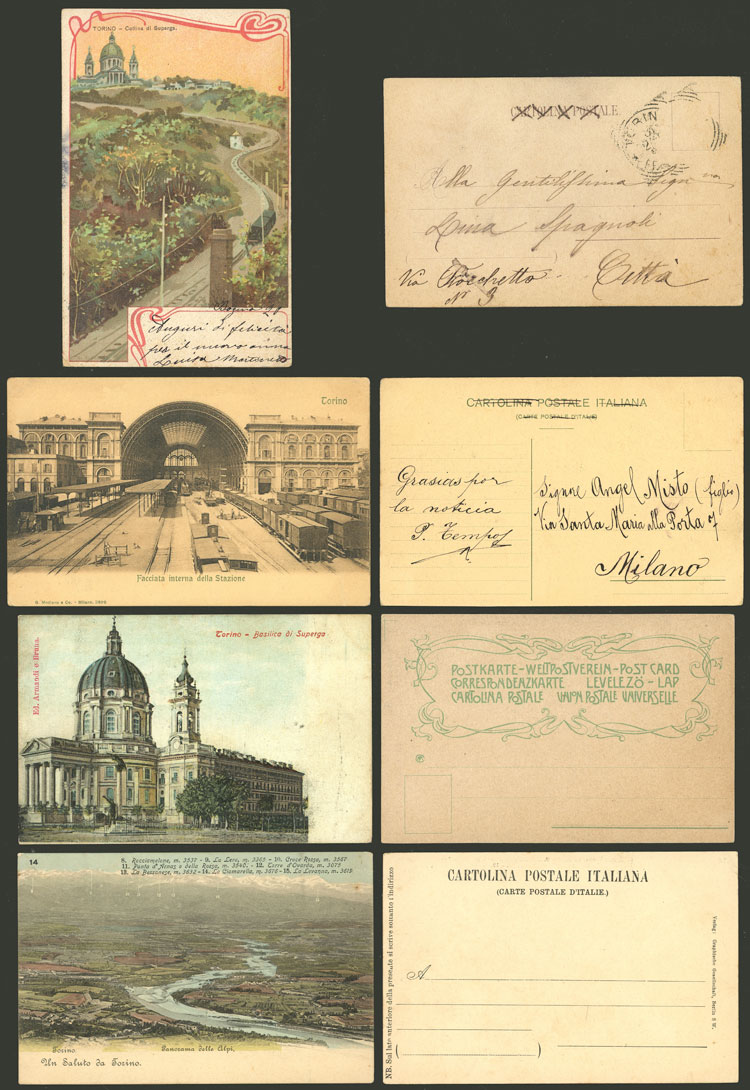 TORINO - Collina di Superga.
Auguri di felicità
per il nuovo anno
Luisa
CARTOLINA POSTALE
TORIN
Alla Gentilissima Sign
Lina Spagnoli
Via Bocchetto - Città
N° 3
Torino
Facciata interna della Stazione
CARTOLINA POSTALE ITALIANA
(CARTE POSTALE D'ITALIE)
Grasias por
la noticia
Signore Angel Misto (figlio)
Via Santa Maria alla Porta 7
Milano
Torino - Basilica di Superga
Ed. Armandi e Bruna.
POSTKARTE - WELTPOSTVEREIN - POST CARD
CORRESPONDENZKARTE LEVELEZÖ - LAP
CARTOLINA POSTALE UNION POSTALE UNIVERSELLE
14
8. Rocciamelone, m. 3537 - 9. La Lera, m. 3365 - 10. Croce Rossa, m. 3567
11. Punta d'Arnas o della Rossa, m. 3540. - 12. Torre d'Ovarda, m. 3075
13. La Bessanese, m. 3632 - 14. La Ciamarella, m. 3676 - 15. La Levanna, m. 3619
Torino. Panorama delle Alpi.
Un Saluto da Torino.
CARTOLINA POSTALE ITALIANA
(CARTE POSTALE D'ITALIE.)
A
NB. Sul lato anteriore della presente si scrive soltanto l'indirizzo